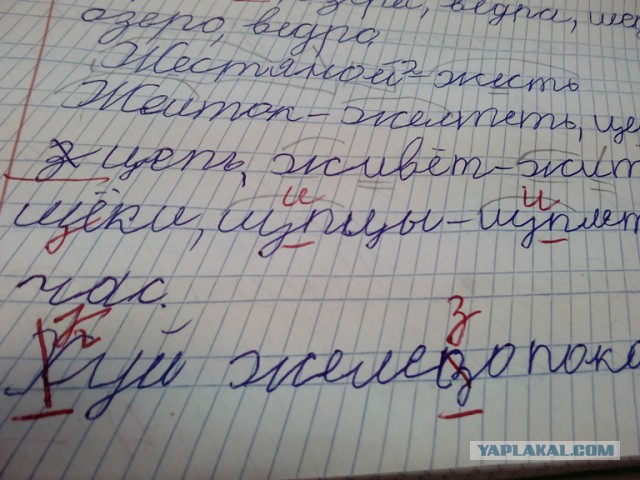 зёра, вёдра, ще
озеро, ведра
Жестяной – жесть
Желток – желтеть, ще
цепь, живёт – жит
щёки, щупцы – щуплет
и и
час.
К з
Хуй железо пока
YAPLAKAL.COM